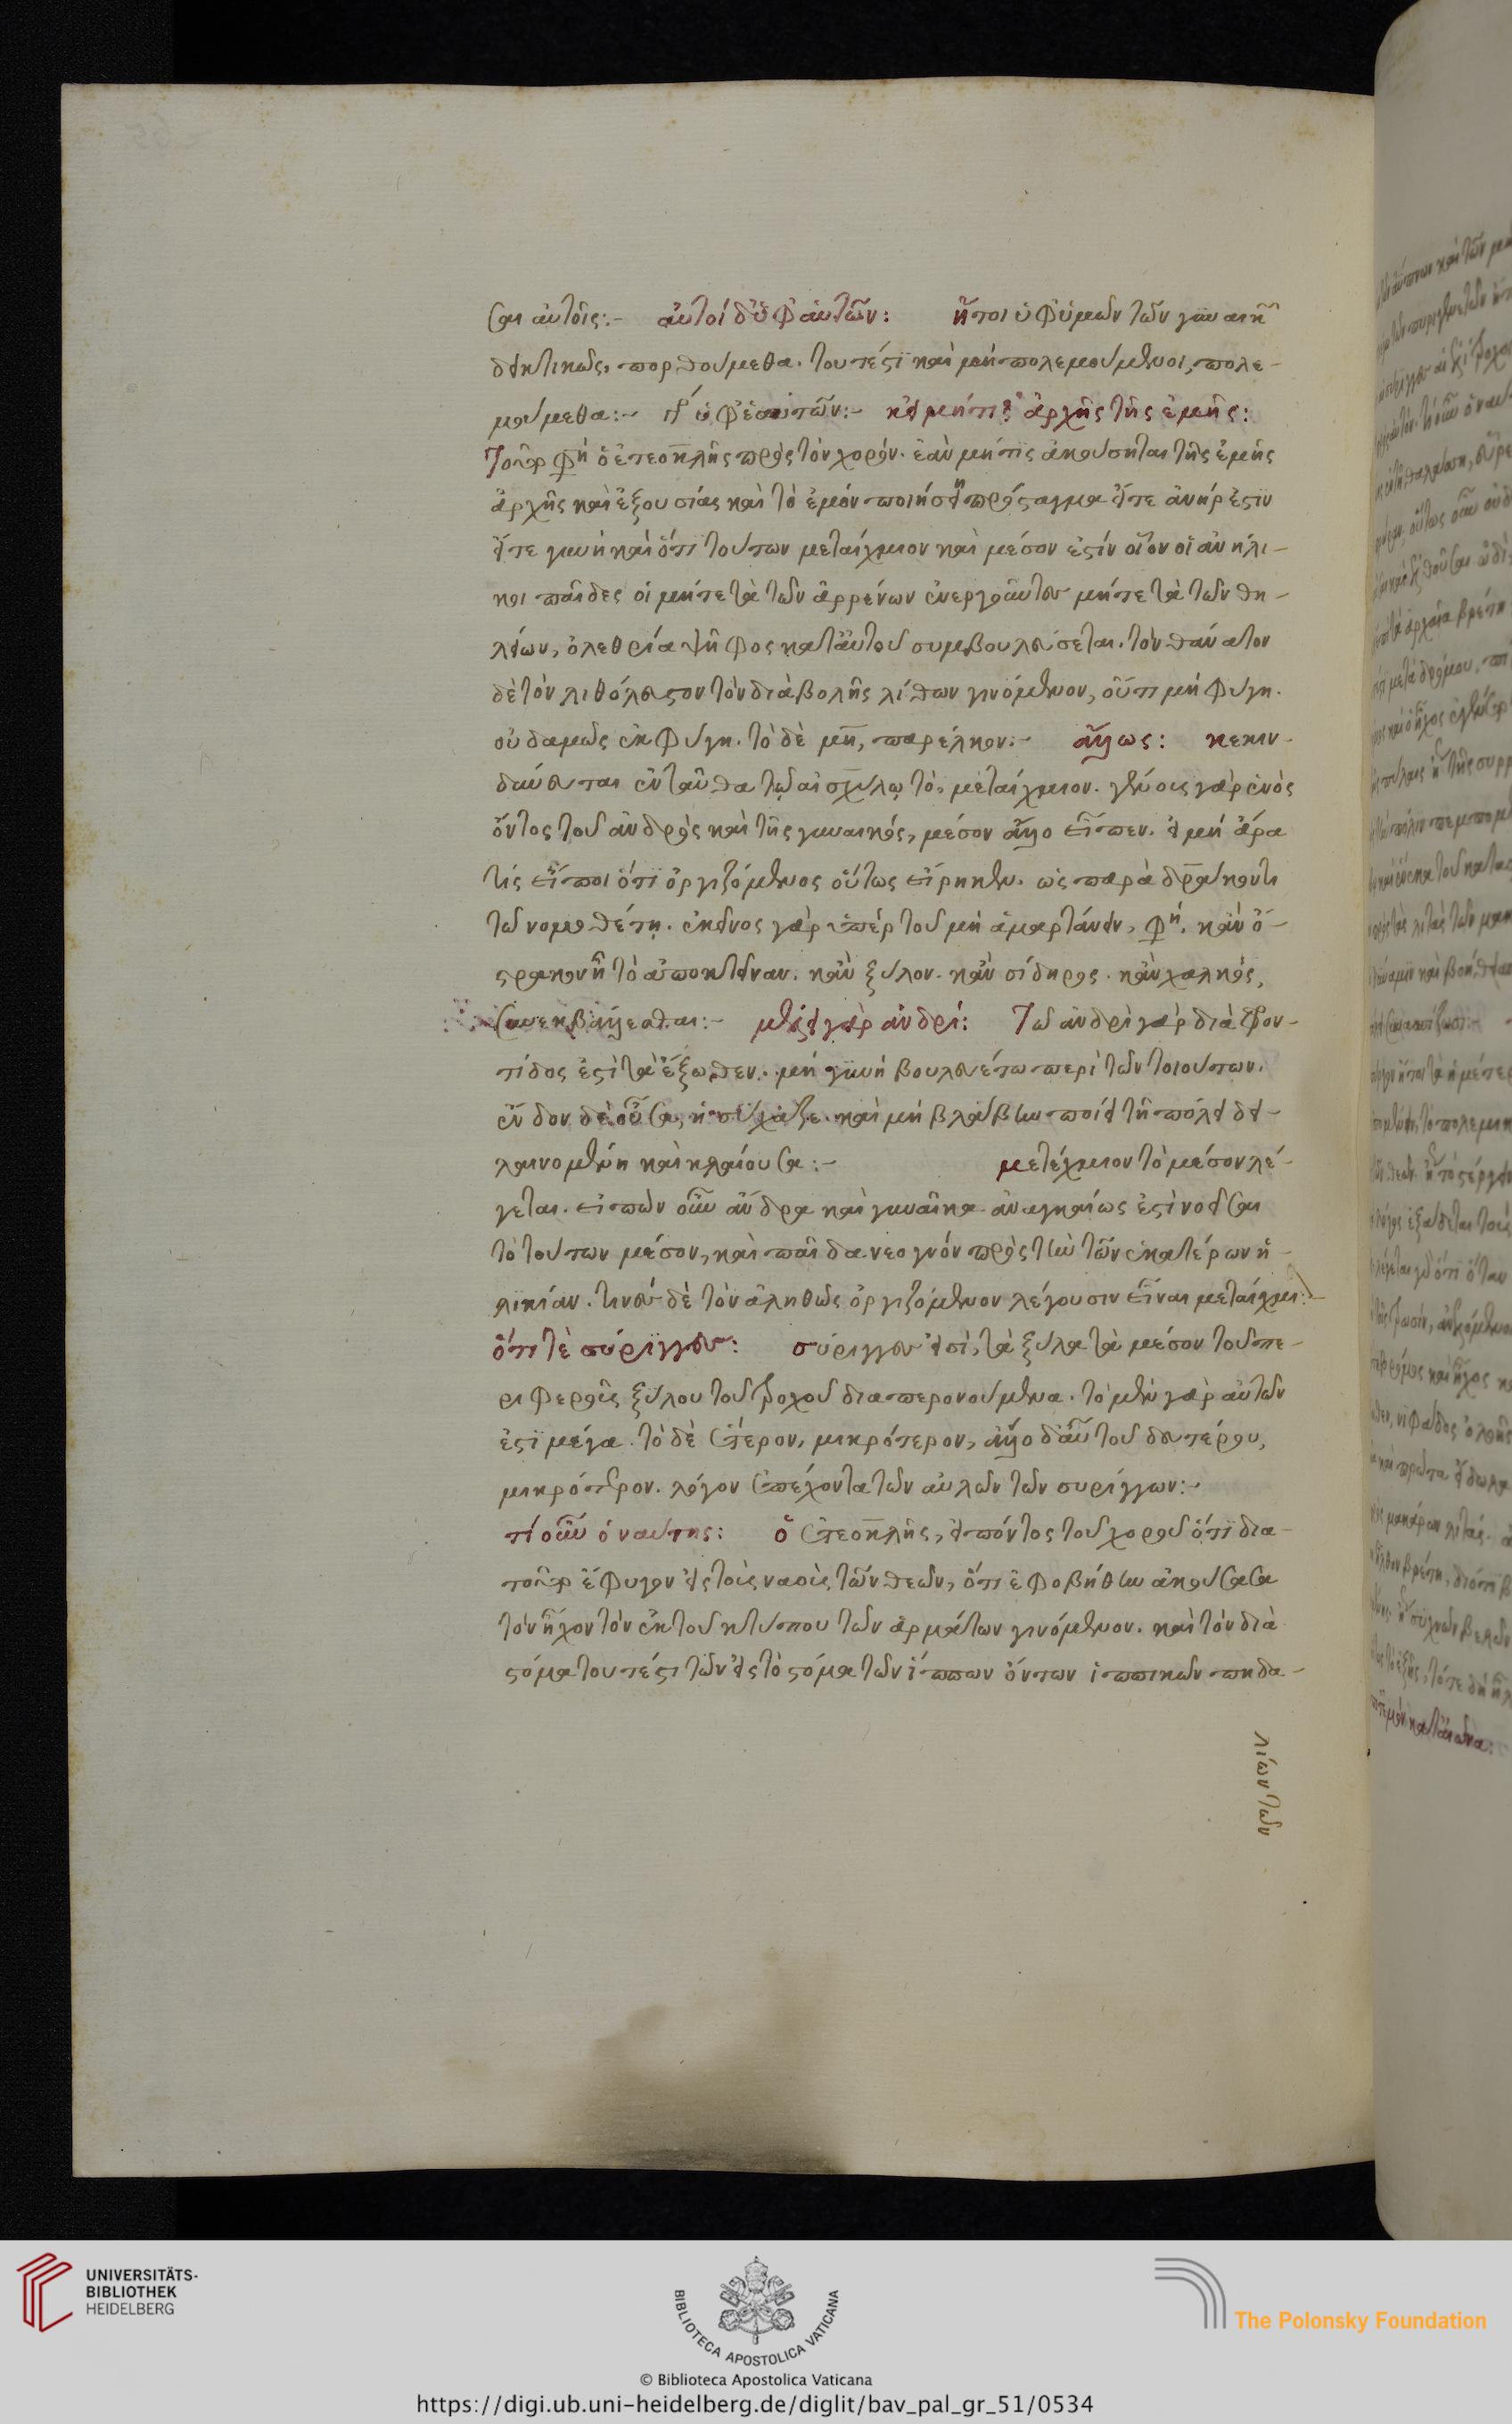 σαι αὐτοῖς:- αὐτοὶ δ' ὑφ' αὑτῶν: ἤτοι ὑφ' ὑμῶν τῶν γυναικῶν
δεικτικῶς, πορθούμεθα. τουτέστι καὶ μὴ πολεμούμενοι, πολε-
μούμεθα:- ὑφ' ἑαυτῶν:- κεἰ μή τις ἀρχῆς τῆς ἐμῆς:
Τοῦτο φη ὁ ἐτεοκλῆς πρὸς τὸν χορόν. ἐὰν μή τις ἀκούσηται τῆς ἐμῆς
ἀρχῆς καὶ ἐξουσίας καὶ τὸ ἐμὸν ποιήσῃ πρόσταγμα εἴτε ἀνήρ ἐστιν
εἴτε γυνὴ καὶ ὅτι τούτων μεταίχμιον καὶ μέσον ἐστίν οἷον οἱ ἀνήλι-
κοι παῖδες οἱ μήτε τὰ τῶν ἀρρένων ἐνεργοῦντες μήτε τὰ τῶν θη-
λειῶν, ὀλεθρία ψῆφος κατ' αὐτοῦ συμβουλεύσεται. τὸν θάνατον
δὲ τὸν λιθόλευστον τὸν διὰ βολῆς λίθων γινόμενον, οὔτι μὴ φύγη.
οὐδαμῶς ἐκφύγη. τὸ δὲ μὴ, παρέλκον:- ἄλλως: κεκιν-
δύνευται ἐνταῦθα τῷ αἰσχύλῳ τὸ, μεταίχμιον. γένους γὰρ ἑνὸς
ὄντος τοῦ ἀνδρὸς καὶ τῆς γυναικός, μέσον ἄλλο εἶπεν. εἰ μὴ ἄρα
τίς εἴποι ὅτι ὀργιζόμενος οὕτως εἴρηκεν. ὡς παρὰ δράκοντι
τῷ νομοθέτῃ. ἐκεῖνος γὰρ ὑπὲρ τοῦ μὴ ἁμαρτάνειν, φη. κἂν ὄ-
στρακον ᾖ τὸ ἀποκτεῖναν. κἂν ξύλον. κἂν σίδηρος. κἂν χαλκός,
συνεκβάλλεσθαι:- μέλει γὰρ ἀνδρί: Τῷ ἀνδρὶ γὰρ διὰ φρον-
τίδος ἐστὶ τὰ ἔξωθεν. μὴ γυνὴ βουλευέτω περὶ τῶν τοιούτων.
ἔνδον δὲ οὖσα, ἡσύχαζε. καὶ μὴ βλάβην ποίει τῇ πόλει δει-
λαινομένη καὶ κλαίουσα:- μετέχμιον τὸ μέσον λέ-
γεται. εἰπὼν οὖν ἄνδρα καὶ γυναῖκα ἀναγκαίως ἐστὶ νοεῖσαι
τὸ τούτων μέσον, καὶ παῖδα νεογνόν πρὸς τὴν τῶν ἑκατέρων ἡ-
λικίαν. τινὲς δὲ τὸν ἀληθῶς ὀργιζόμενον λέγουσιν εἶναι μεταίχμι:-
ὅτι τὲ σύριγγες: σύριγγες εἰσὶ, τὰ ξύλα τὰ μέσον τοῦ πε-
ριφεροῦς ξύλου τοῦ τροχοῦ διαπερονούμενα. τὸ μὲν γὰρ αὐτῶν
ἐστι μέγα. τὸ δὲ ἕτερον, μικρότερον, ἄλλο δ' αὖ τοῦ δευτέρου,
μικρότερον. λόγον ἐπέχοντα τῶν αὐλῶν τῶν συρίγγων:-
τί οὖν ὁ ναύτης: ὁ ἐτεοκλῆς, εἰπόντος τοῦ χοροῦ ὅτι δια-
τοῦτο ἔφυγον εἰς τοὺς ναοὺς τῶν θεῶν, ὅτι ἐφοβήθην ἀκούσασα
τὸν ἦχον τὸν ἐκ τοῦ κτύπου τῶν ἁρμάτων γινόμενον. καὶ τὸν διὰ
στόμα τουτέστι τῶν εἰς τὸ στόμα τῶν ἵππων ὄντων ἱππικῶν πηδα-
λίων τῶν
UNIVERSITÄTS-
BIBLIOTHEK
HEIDELBERG
BIBLIOTECA APOSTOLICA VATICANA
The Polonsky Foundation
© Biblioteca Apostolica Vaticana
https://digi.ub.uni-heidelberg.de/diglit/bav_pal_gr_51/0534